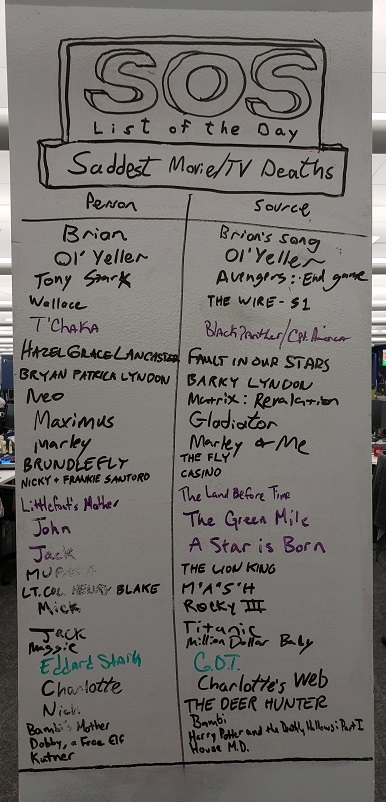 SOS
List of the Day
Saddest Movie/TV Deaths
Person Source
Brian Brian's Song
Ol' Yeller Ol' Yeller
Tony Stark Avengers: End game
Wallace THE WIRE - S1
T'CHAKA Black Panther/Cpt. America
HAZEL GRACE LANCASTER FAULT IN OUR STARS
BRYAN PATRICK LYNDON BARRY LYNDON
Neo Matrix: Revolution
Maximus Gladiator
Marley Marley & Me
BRUNDLEFLY THE FLY
NICKY + FRANKIE SANTORO CASINO
Littlefoot's Mother The Land Before Time
John The Green Mile
Jack A Star is Born
THE LION KING
LT. COL. HENRY BLAKE M*A*S*H
Mick Rocky III
Jack Titanic
Maggie Million Dollar Baby
Eddard Stark G.O.T.
Charlotte Charlotte's Web
Nick THE DEER HUNTER
Bambi's Mother Bambi
Dobby, a Free Elf Harry Potter and the Deathly Hallows: Part I
Kutner House M.D.